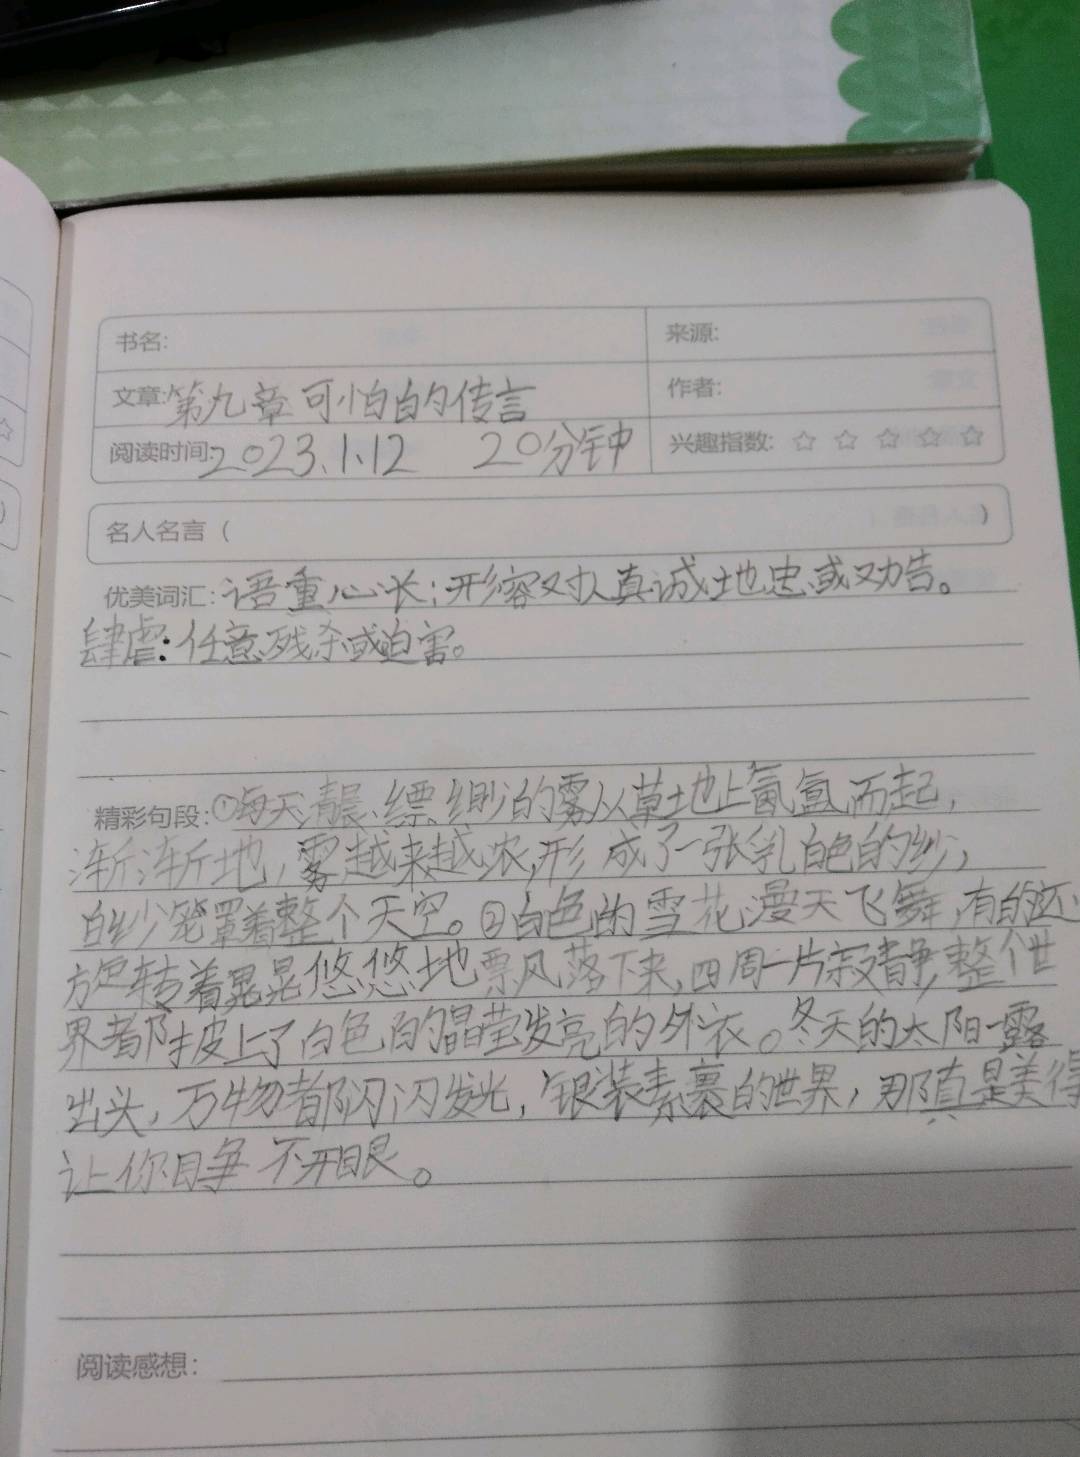 书名:
来源:
文章:第九章 可怕的传言
作者:
阅读时间:2023.1.12 20分钟
兴趣指数: ☆ ☆ ☆ ☆ ☆
名人名言 ( )
优美词汇:语重心长:形容对人真诚地忠或劝告。
肆虐:任意残杀或迫害。
精彩句段:①每天清晨,缥缈的雾从草地上氤氲而起,
渐渐地,雾越来越浓,形成了一张乳白色的纱,
白纱笼罩着整个天空。②白色的雪花漫天飞舞,有的还
旋转着晃晃悠悠地飘落下来,四周一片寂静,整个世
界都披上了白色的晶莹发亮的外衣。冬天的太阳一露
出头,万物都闪闪发光,银装素裹的世界,那真是美得
让你睁不开眼。
阅读感想: